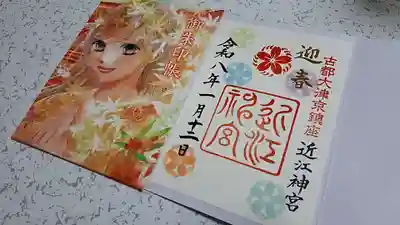 御朱印帳
古都大津京鎮座
近江神宮
迎春
近江
神宮
令和八年一月十二日